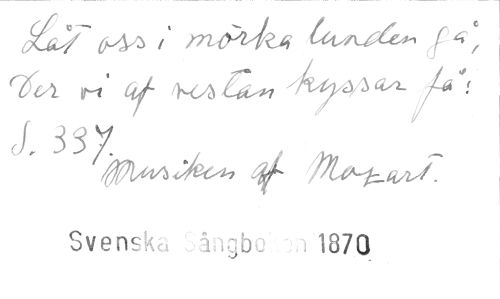 Låt oss i mörka lunden gå,
Der vi af vestan kyssar få:
S. 337.
Musiken af Mozart.
Svenska Sångboken 1870